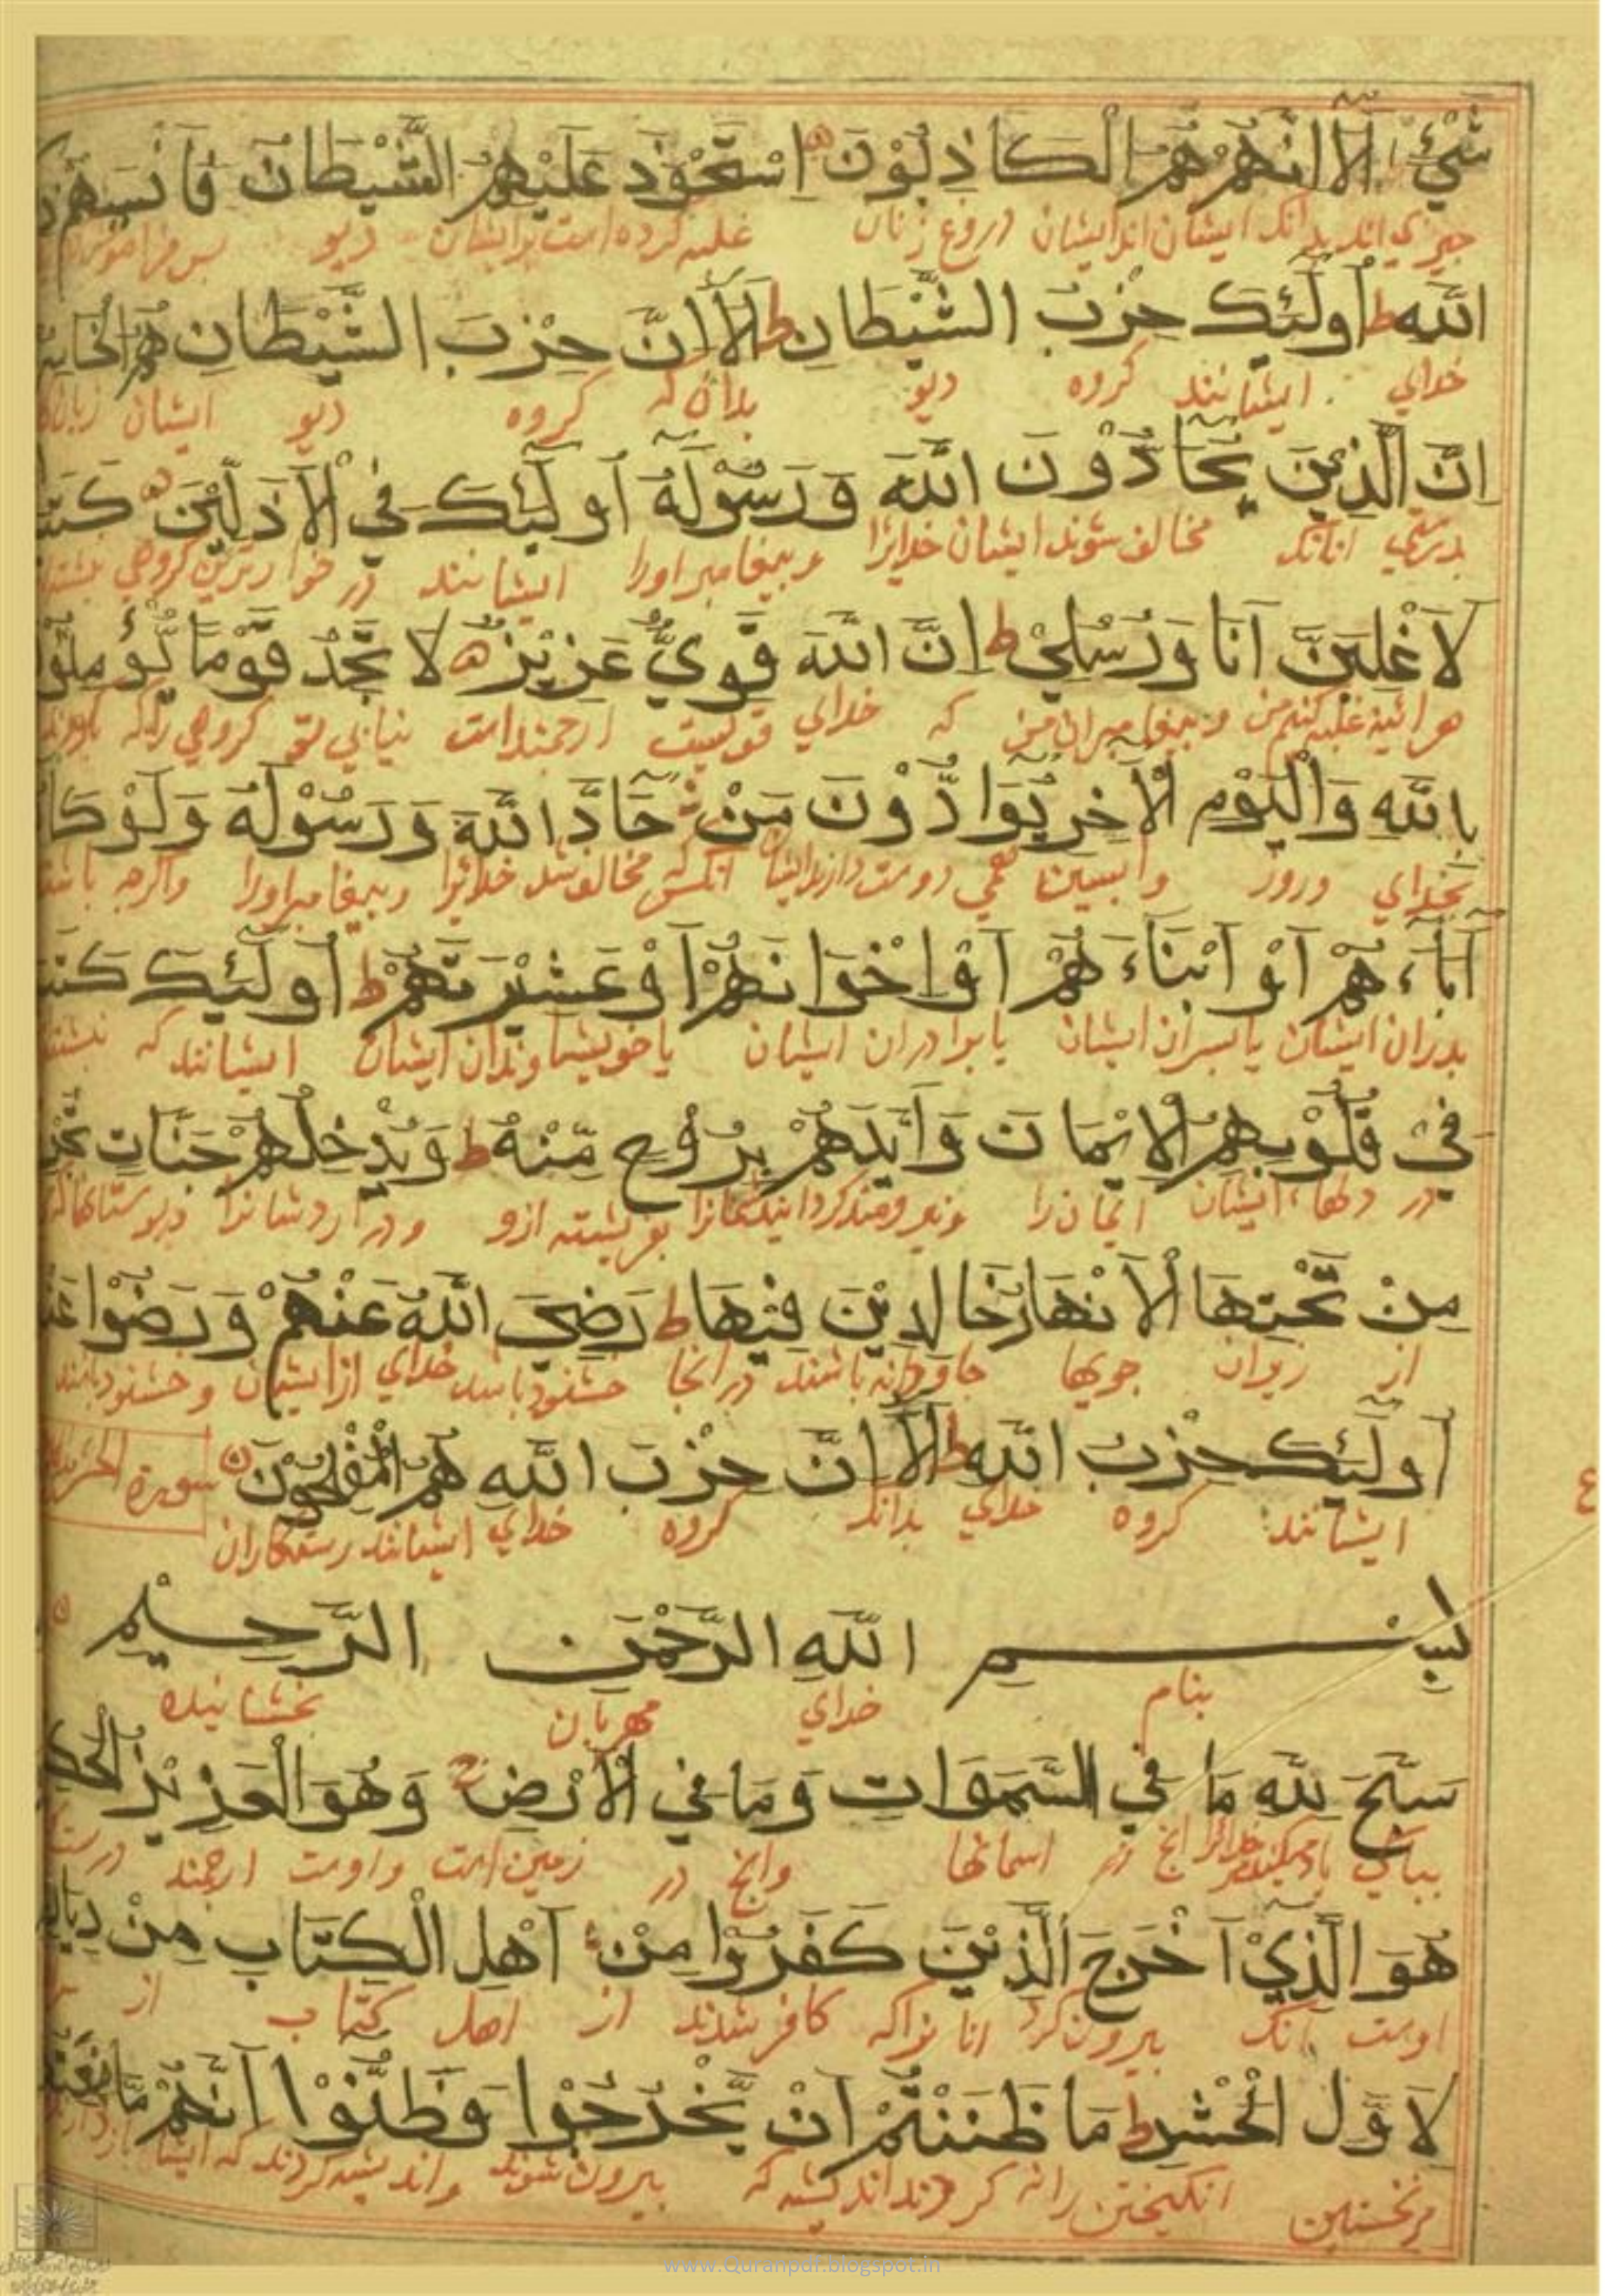 شَيْءٍ اَلَا اِنَّهُمْ هُمُ الْكَاذِبُوْنَ اِسْتَحْوَذَ عَلَيْهِمُ الشَّيْطَانُ فَاَنْسٰهُمْ
چیزی اند بدانک ایشان اند ایشان دروغ زنان غلبه کرده است بر ایشان دیو پس فراموش
اللّٰهِ ط اُولٰٓئِكَ حِزْبُ الشَّيْطَانِ ط اَلَا اِنَّ حِزْبَ الشَّيْطَانِ هُمُ
خدای ایشانند گروه دیو بدان که گروه دیو ایشان
اِنَّ الَّذِيْنَ يُحَادُّوْنَ اللّٰهَ وَرَسُوْلَهُ اُولٰٓئِكَ فِي الْاَذَلِّيْنَ
بدرستی انانک مخالف شوند ایشان خدایرا و پیغامبر اورا ایشانند در خوارترین گروهی
لَاَغْلِبَنَّ اَنَا وَرُسُلِيْ ط اِنَّ اللّٰهَ قَوِيٌّ عَزِيْزٌ لَا تَجِدُ قَوْمًا
هرآئینه غلبه کنم من و پیغامبران من که خدای قویست ارجمند است نیابی تو گروهی را که
بِاللّٰهِ وَالْيَوْمِ الْاٰخِرِ يُوَادُّوْنَ مَنْ حَادَّ اللّٰهَ وَرَسُوْلَهُ وَلَوْ
بخدای وروز واپسین دوست دارند انکس که مخالف شد خدایرا و پیغامبر اورا واگرچه
اٰبَآءَهُمْ اَوْ اَبْنَآءَهُمْ اَوْ اِخْوَانَهُمْ اَوْ عَشِيْرَتَهُمْ ط اُولٰٓئِكَ
پدران ایشان یا پسران ایشان یا برادران ایشان یا خویشاوندان ایشان ایشانند که
فِيْ قُلُوْبِهِمُ الْاِيْمَانَ وَاَيَّدَهُمْ بِرُوْحٍ مِّنْهُ ط وَيُدْخِلُهُمْ جَنَّاتٍ
در دلهاء ایشان ایمان را بفریشته ازو
مِنْ تَحْتِهَا الْاَنْهَارُ خَالِدِيْنَ فِيْهَا ط رَضِيَ اللّٰهُ عَنْهُمْ وَرَضُوْا
از زیران جویها جاودانه باشند در انجا خشنود باشد خدای از ایشان و خشنود
اُولٰٓئِكَ حِزْبُ اللّٰهِ ط اَلَا اِنَّ حِزْبَ اللّٰهِ هُمُ الْمُفْلِحُوْنَ سورة
ایشانند گروه خدای بدانک گروه خدای ایشانند رستگاران
ع
بِسْمِ اللّٰهِ الرَّحْمٰنِ الرَّحِيْمِ
بنام خدای مهربان بخشاینده
سَبَّحَ لِلّٰهِ مَا فِي السَّمٰوَاتِ وَمَا فِي الْاَرْضِ وَهُوَ الْعَزِيْزُ
بپاکی یاد میکند خدایرا انچ در اسمانها وانچ در زمین است واوست ارجمند
هُوَ الَّذِيْ اَخْرَجَ الَّذِيْنَ كَفَرُوْا مِنْ اَهْلِ الْكِتَابِ مِنْ
اوست آنک بیرون کرد انانراکه کافر شدند از اهل کتاب از
لِاَوَّلِ الْحَشْرِ ط مَا ظَنَنْتُمْ اَنْ يَّخْرُجُوْا وَظَنُّوْا اَنَّهُمْ
انگیختن بیرون شوند واندیشه کردند که
www.Quranpdf.blogspot.in